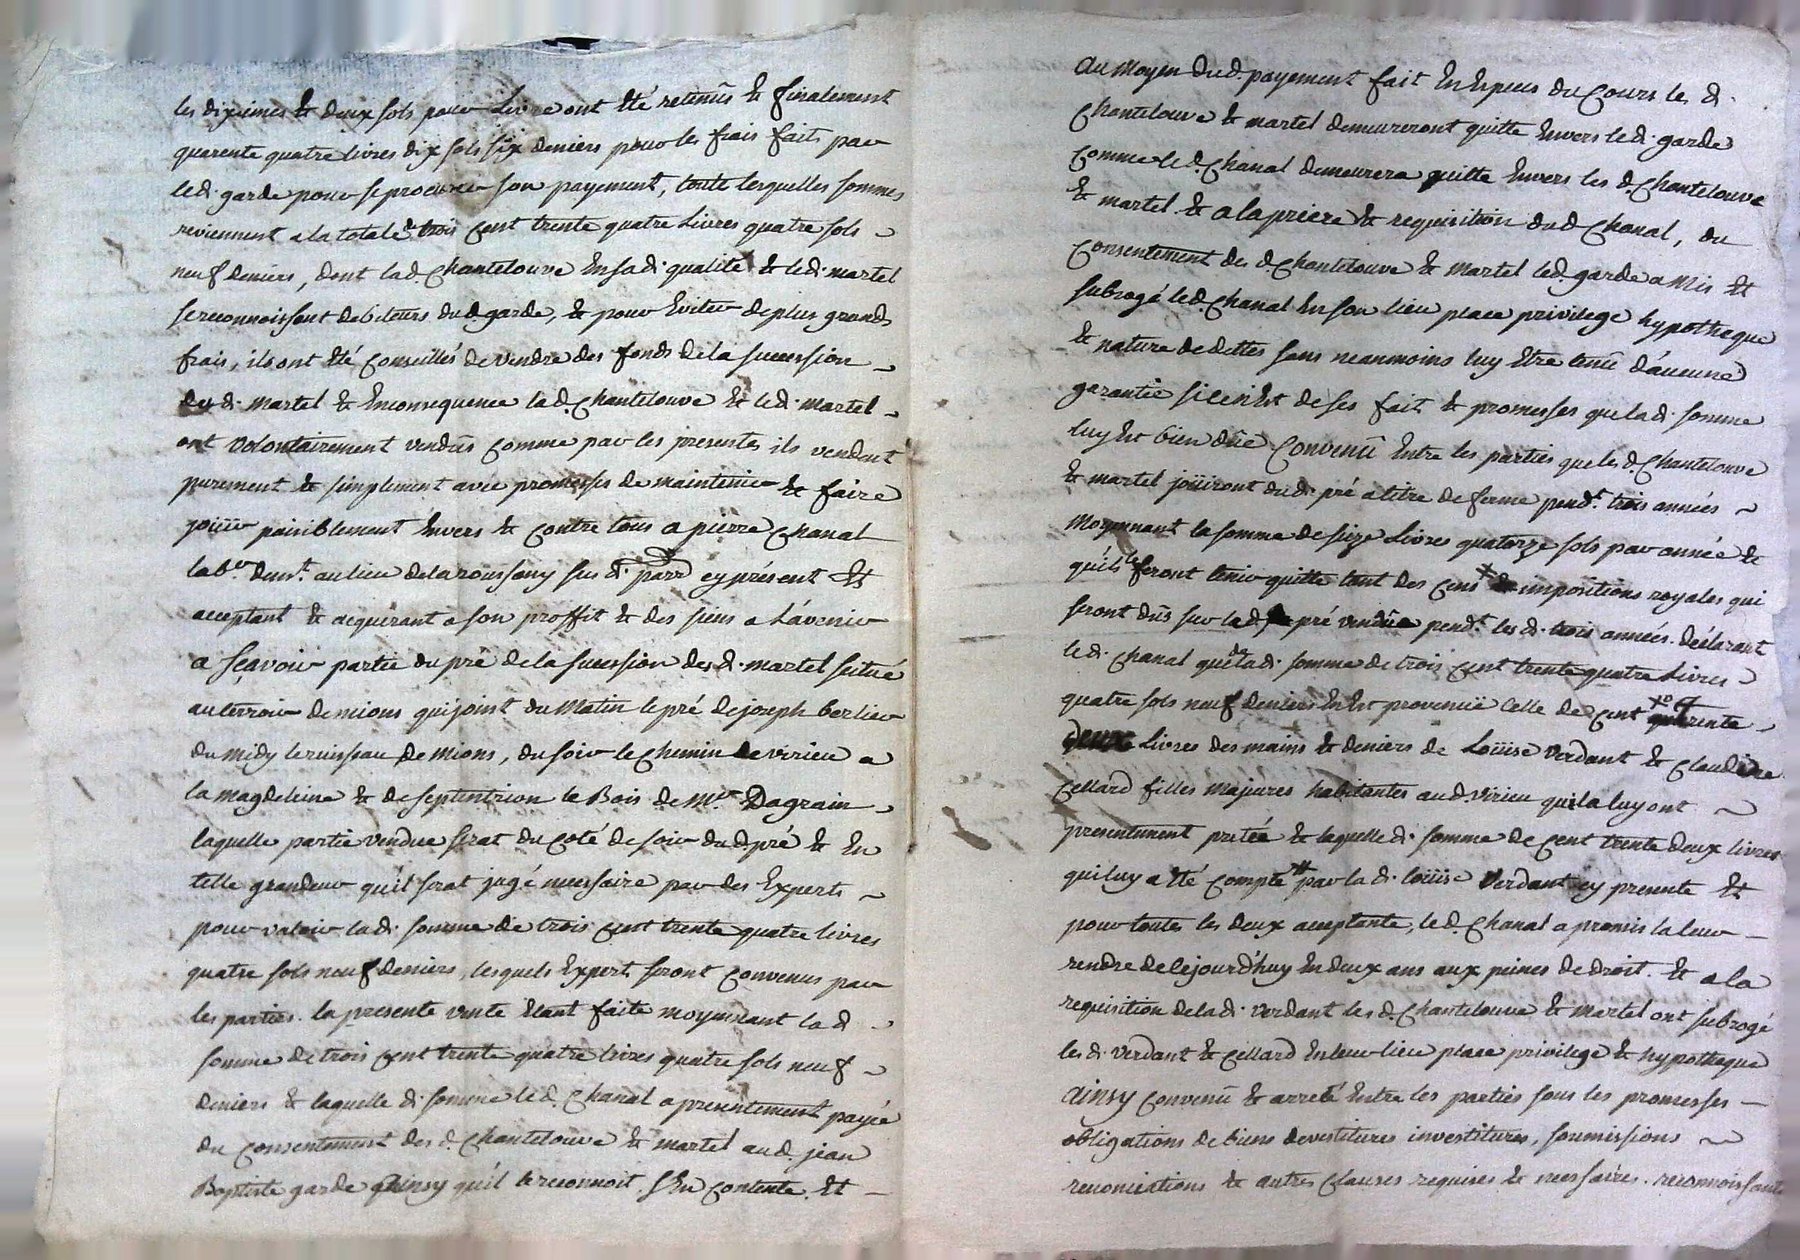 les dixiemes & deux sols pour Livre ont été retenûs & finalement
quarente quatre livres dix sols six deniers pour les frais faits par
led. garde pour se procurer son payement, toutte lesquelles sommes
reviennent a la totale de trois cent trente quatre Livres quatre sols
neuf deniers, dont lad. Chantelouve en sad. qualité & led. martel
se reconnoissent debiteurs dud garde, & pour Eviter de plus grands
frais, ils ont été Conseillés de vendre des fonds de la succession
dud. martel & Enconsequence la d. Chantelouve & led. martel
ont volontairement vendûs comme par les presentes ils vendent
purement & simplement avec promesses de maintenir & faire
joüir paisiblement Envers & contre tous a pierre Chanal
lab.r dem.t au lieu de la roussony sus d. parr cy présent &
acceptant & acquerant a son proffit & des siens a L'avenir
a sçavoir partie du pré de la sucession dud. martel situé
au terroir de mions qui joint du Matin le pré de joseph berlier
du midy le ruisseau de Mions, du soir le Chemin de virieu a
la magdeleine & de septentrion le Bois de Mr. Dagrain
laquelle partie vendue serat du coté de soir dud pré & En
telle grandeur qu'il serat jugé necessaire par des Experts
pour valoir lad. somme de trois cent trente quatre livres
quatre sols neuf deniers, lesquels Expert seront convenus par
les parties. la presente vente Etant faite moyennant la d
somme de trois cent trente quatre livres quatre sols neuf
deniers & laquelle d. somme le d. Chanal a presentement payée
du consentement des d. Chantelouve & martel aud. jean
Baptiste garde qu'ainsy qu'il le reconnoit s'en contente. &
au moyen dud. payement fait En Especes du Cours les d.
Chantelouve & martel demeureront quitte Envers led. garde
comme led. Chanal demeurera quitte Envers les d. Chantelouve
& martel. & a la priere & requisition dud Chanal, du
consentement des d. Chantelouve & Martel led. garde a Mis &
subrogé led. Chanal En son lieu place privilege hypotheque
& nature de dettes sans neanmoins luy Etre tenû d'aucune
garantie si ce n'Est de ses fait & promesses que la d. somme
luy Est bien dûe Convenû Entre les parties que les d. Chantelouve
& martel joüiront dud. pré a titre de ferme pend.t trois années
moyennant la somme de seize Livres quatorze sols par année &
qu'ils le feront tenir quitte tant des cens impositions royales qui
seront dûs sur led pré vendûe pend.t les d. trois années. Déclarant
le d. Chanal que de la d. somme de trois cent trente quatre Livres
quatre sols neuf deniers En Est provenüe Celle de cent trente
deux Livres des mains & deniers de Loüise Verdant & Claudine
Cellard filles majeures habitantes aud. virieu qui la luy ont
presentement pretée & laquelle d. somme de Cent trente deux livres
qui luy a été comptée par la d. loüise Verdant cy presente &
pour toutes les deux acceptante, le d. Chanal a promis la leur
rendre de Cejourd'huy En deux ans aux peines de droit. & a la
requisition de la d. Verdant les d. Chantelouve & martel ont subrogé
les d. Verdant & Cellard En leur lieu place privilege & hypotheque
ainsy convenû & arreté Entre les parties sous les promesses
obligations de biens devestitures investitures, soumissions
renonciations & autres clauses requises & necessaires. reconnoissants